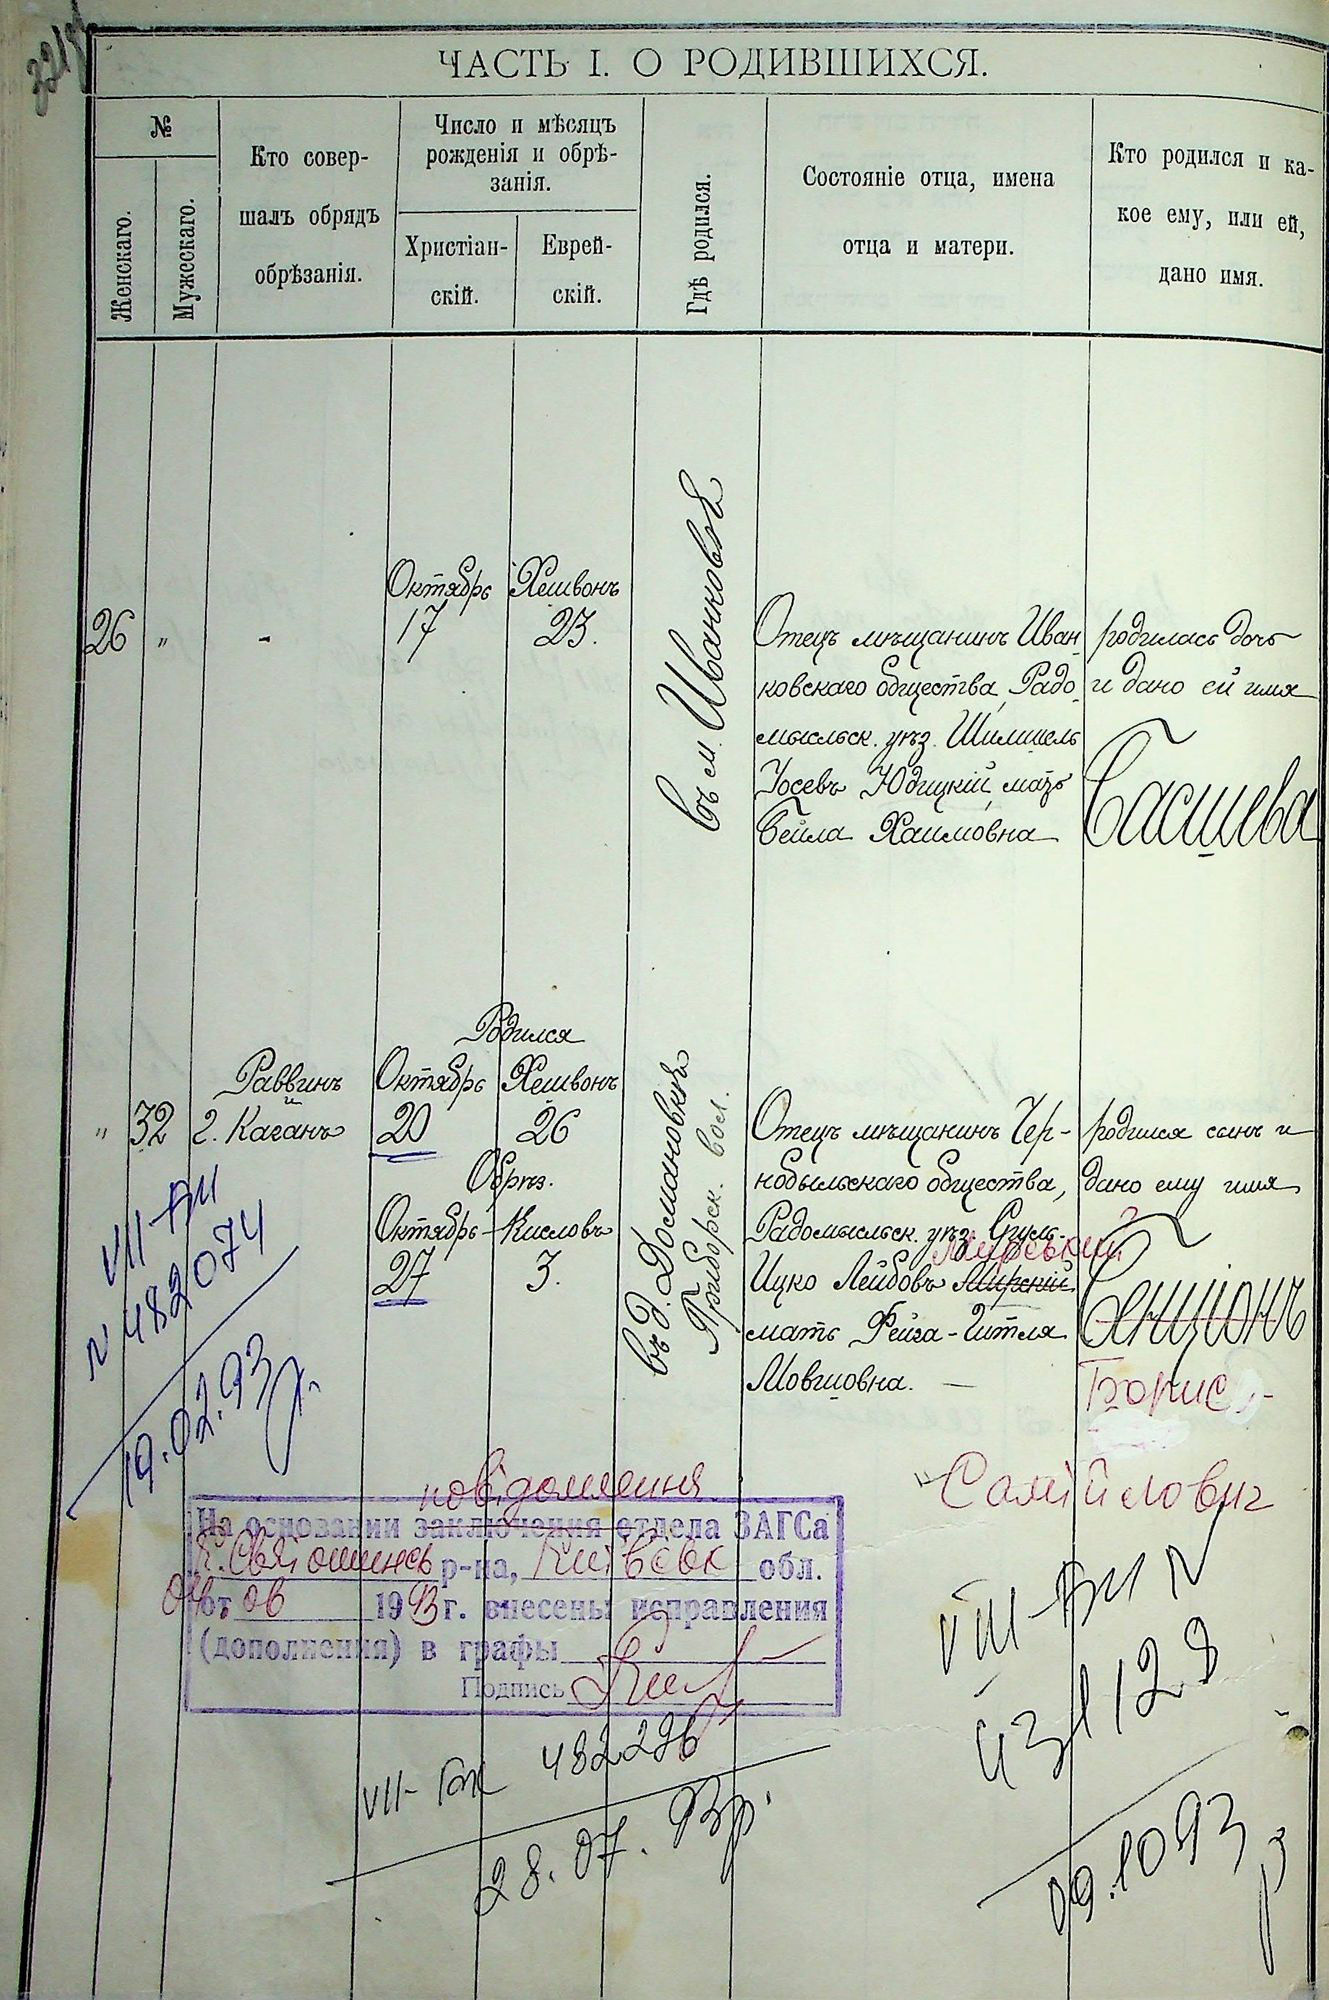 ЧАСТЬ I. О РОДИВШИХСЯ.
№
Женскаго.
Мужескаго.
Кто совер-
шалъ обрядъ
обрѣзанія.
Число и мѣсяцъ
рожденія и обрѣ-
занія.
Христіан-
скій.
Еврей-
скій.
Гдѣ родился.
Состояніе отца, имена
отца и матери.
Кто родился и ка-
кое ему, или ей,
дано имя.
26 " -
Октябрь
17
Хешвонъ
23.
въ м. Иванковѣ
Отецъ мѣщанинъ Иван
ковскаго общества, Радо
мысльск. уѣз. Шмишель
Іосевъ Юдицкій, мать
Бейла Хаимовна
родилась дочь
и дано ей имя
Басшева
" 32
Раввинъ
г. Каганъ
Родился
Октябрь Хешвонъ
20 26
Обрѣз.
Октябрь - Кисловъ
27 3.
въ д. Домановкѣ
Приборск. вол.
Отецъ мѣщанинъ Чер-
нобыльскаго общества,
Радомысльск. уѣз.
Мирський
Ицко Лейбовъ Мирскій
мать Фейга-Гитля
Мовшовна. —
родился сынъ и
дано ему имя
Бенціонъ
Борис
Самійлович
VII-БМ
N 482074
19.02.93
повідомлення
На основании заключения отдела ЗАГСа
р-на, Київськ обл.
от 1993 г. внесены исправления
(дополнения) в графы
Подпись
482226
28.07.93р.
VIII-БМ N
431128
09.10 93р